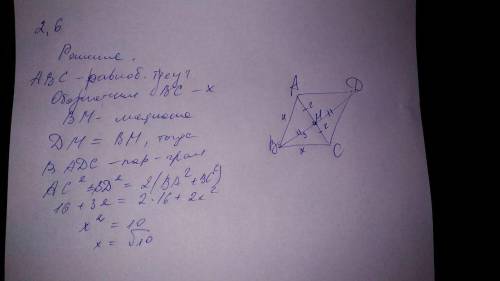 2,6
Решение.
ABC - равноб. треуг
Обозначим BC - x
BM - медиана
DM = BM, тогда
BADC - пар-грам
AC² + BD² = 2(BA² + BC²)
16 + 32 = 2·16 + 2x²
x² = 10
x = √10
A D
2
4 M
3 2
B x C